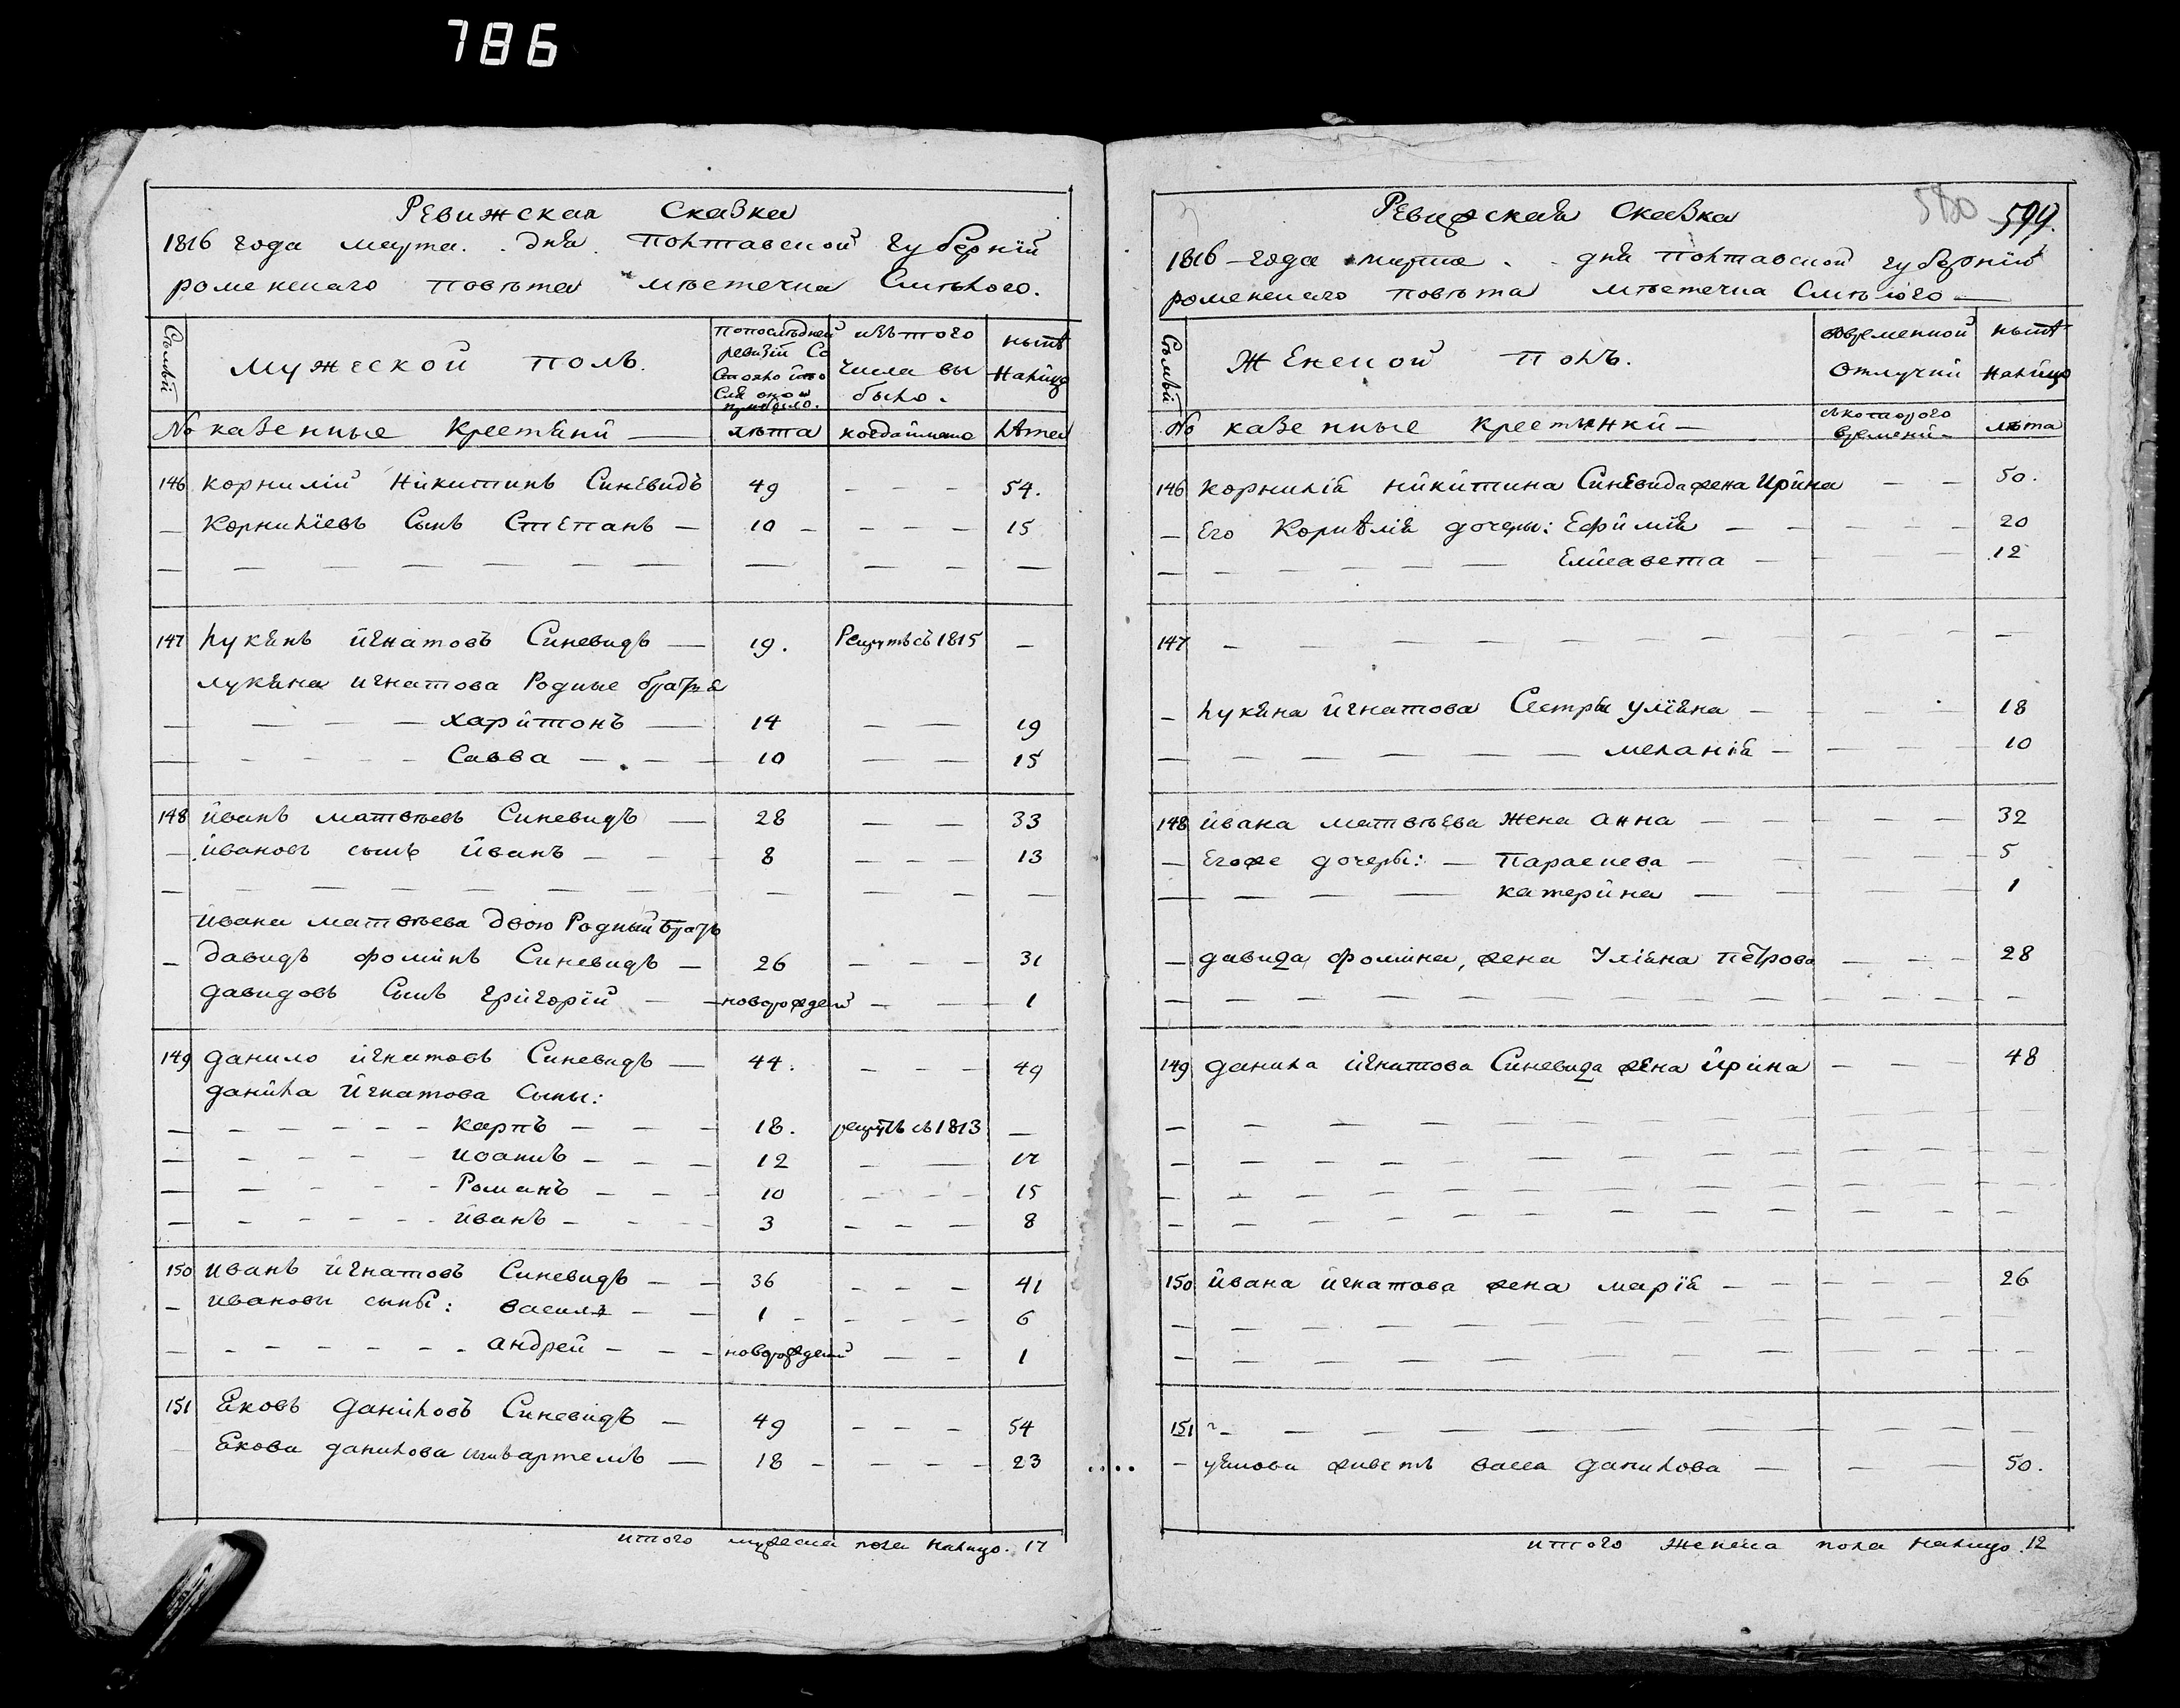 786
Ревижская Сказка
1816 года марта . . дня . Полтавской губернїй
роменскаго повѣта мѣстечка Смѣлого.
Сѣмьй
Мужеской полъ.
попослѣдней ревизїй Состояло ило Слѣ оной прибыло.
изъ того числа выбыло.
нынѣ налицо
№ казенные Крестяни —
лѣта
когда имено
лѣта
146 корнилій Никитинъ Синевидъ 49 — — — 54.
— Корнилїевъ Сынъ Степанъ — 10 — — — — 15
147 Лукянъ Игнатовъ Синевидъ — 19. Рекрутъ съ 1815 —
лукяна игнатова Родные братья
— — — — харитонъ — 14 — — 19
— — — — Савва — — 10 — — 15
148 Иванъ матвѣевъ Синевидъ — 28 — — 33
— Ивановъ сынъ Иванъ — — 8 — — — 13
Ивана матвѣева двою Родный братъ
— Давидъ фоминъ Синевидъ — 26 — — — 31
давидовъ Сынъ григорїй — — новорождей — — 1
149 данило игнатовъ Синевидъ — 44. — — — 49
данила Игнатова Сыны:
— — — — карпъ — — 18. рекрутъ съ 1813 —
— — — — иоанъ — — 12 — — 17
— — — — Романъ — — 10 — — — 15
— — — — иванъ — — 3 — — — 8
150 иванъ игнатовъ Синевидъ — — 36 — — — 41
— ивановы сыны: василя — — 1 — — — — 6
— — — — андрей — — новорождей — — 1
151 Яковъ Даниловъ Синевидъ — 49 — — — 54
Якова данилова сынъ артемъ — 18 — — — — 23
итого мужеска пола налицо. 17
580 599.
Ревижская Сказка
1816 года марта . . дня полтавской губернїй
роменскаго повѣта мѣстечка Смѣлого —
Сѣмьй
Женской полъ.
вовременной Отлучки
нынѣ налицо
№ казенные крестянки —
съкоторого времени —
лѣта
146 корнилія никитина Синевида жена Ирина — — 50.
— Его Корнѣлія дочеры: Ефимїя — — — — 20
Елисавета — — — — 12
147 — — — — — —
— Лукяна Игнатова Сестры улїяна — — — 18
— — — — меланія — — — 10
148 ивана матвѣева жена анна — — — — 32
— Егоже дочеры: — параскева — — — 5
— — — — катерина — — — 1
— давида фомина, жена Улїяна петрова — — — 28
149 данила игнатова Синевида жена Ирина — — — 48
150 Ивана игнатова жена марїя — — — — 26
151 — — — — — —
— уякова живетъ васса данилова — — — 50.
итого женска пола налицо .12